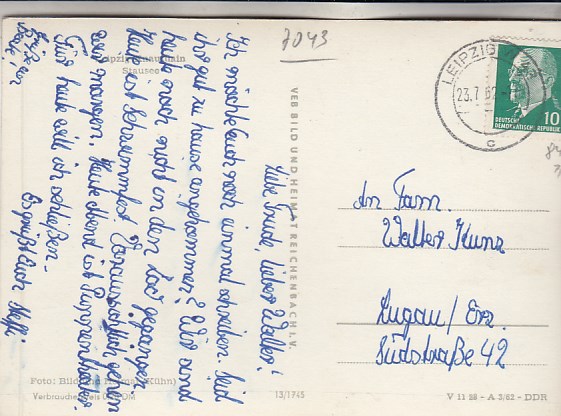 7043
Leipzig-Knauthain
Stausee
Liebe Traude, lieber Walter!
Ich möchte Euch noch einmal schreiben. Seid
ihr gut zu hause angekommen? Wir sind
heute noch nicht in den Zoo gegangen.
Heute ist Schwimmfest. Voraussichtlich gehen
wir morgen. Heute Abend ist
Für heute will ich schließen.
Es grüßt Euch
VEB BILD UND HEIMAT REICHENBACH I. V.
LEIPZIG
23.7.62
C
DEUTSCHE
DEMOKRATISCHE REPUBLIK
10
An Fam.
Walter Kunz
Lugau/Erz.
Südstraße 42
Foto: Bild und Heimat (Kühn)
Verbraucherpreis 0,20 DM
13/1745
V 11 28 - A 3/62 - DDR